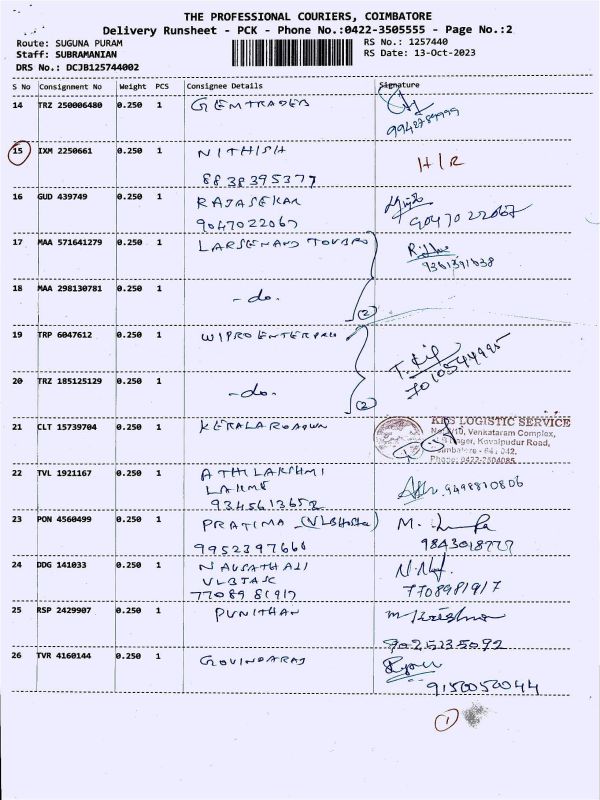 THE PROFESSIONAL COURIERS, COIMBATORE
Delivery Runsheet - PCK - Phone No.:0422-3505555 - Page No.:2
Route: SUGUNA PURAM RS No.: 1257440
Staff: SUBRAMANIAN RS Date: 13-Oct-2023
DRS No.: DCJB125744002
S No Consignment No Weight PCS Consignee Details Signature
14 TRZ 250006480 0.250 1 GEMTRADERS
15 IXM 2250661 0.250 1 NITHISH H/R
8838395377
16 GUD 439749 0.250 1 RAJASEKAR
9047022067 9047022067
17 MAA 571641279 0.250 1 LARSEN AND TOUBRO
18 MAA 298130781 0.250 1 -do. (2)
19 TRP 6047612 0.250 1 WIPRO ENTERPRI
7010544995
20 TRZ 185125129 0.250 1 -do. (2)
21 CLT 15739704 0.250 1 KERALA ROADWN KRS LOGISTIC SERVICE
Venkataram Complex,
Kovaipudur Road,
Phone: 0422-2604085
22 TVL 1921167 0.250 1 ATHILAKSHMI
9498810806
9345613652
23 PON 4560499 0.250 1 PRATIMA M.
9952397666 9843018777
24 DDG 141033 0.250 1 NAUSATH ALI
7708981917 7708981917
25 RSP 2429907 0.250 1 PUNITHAN
9025135092
26 TVR 4160144 0.250 1 GOVINDARAJ
9150050044
1